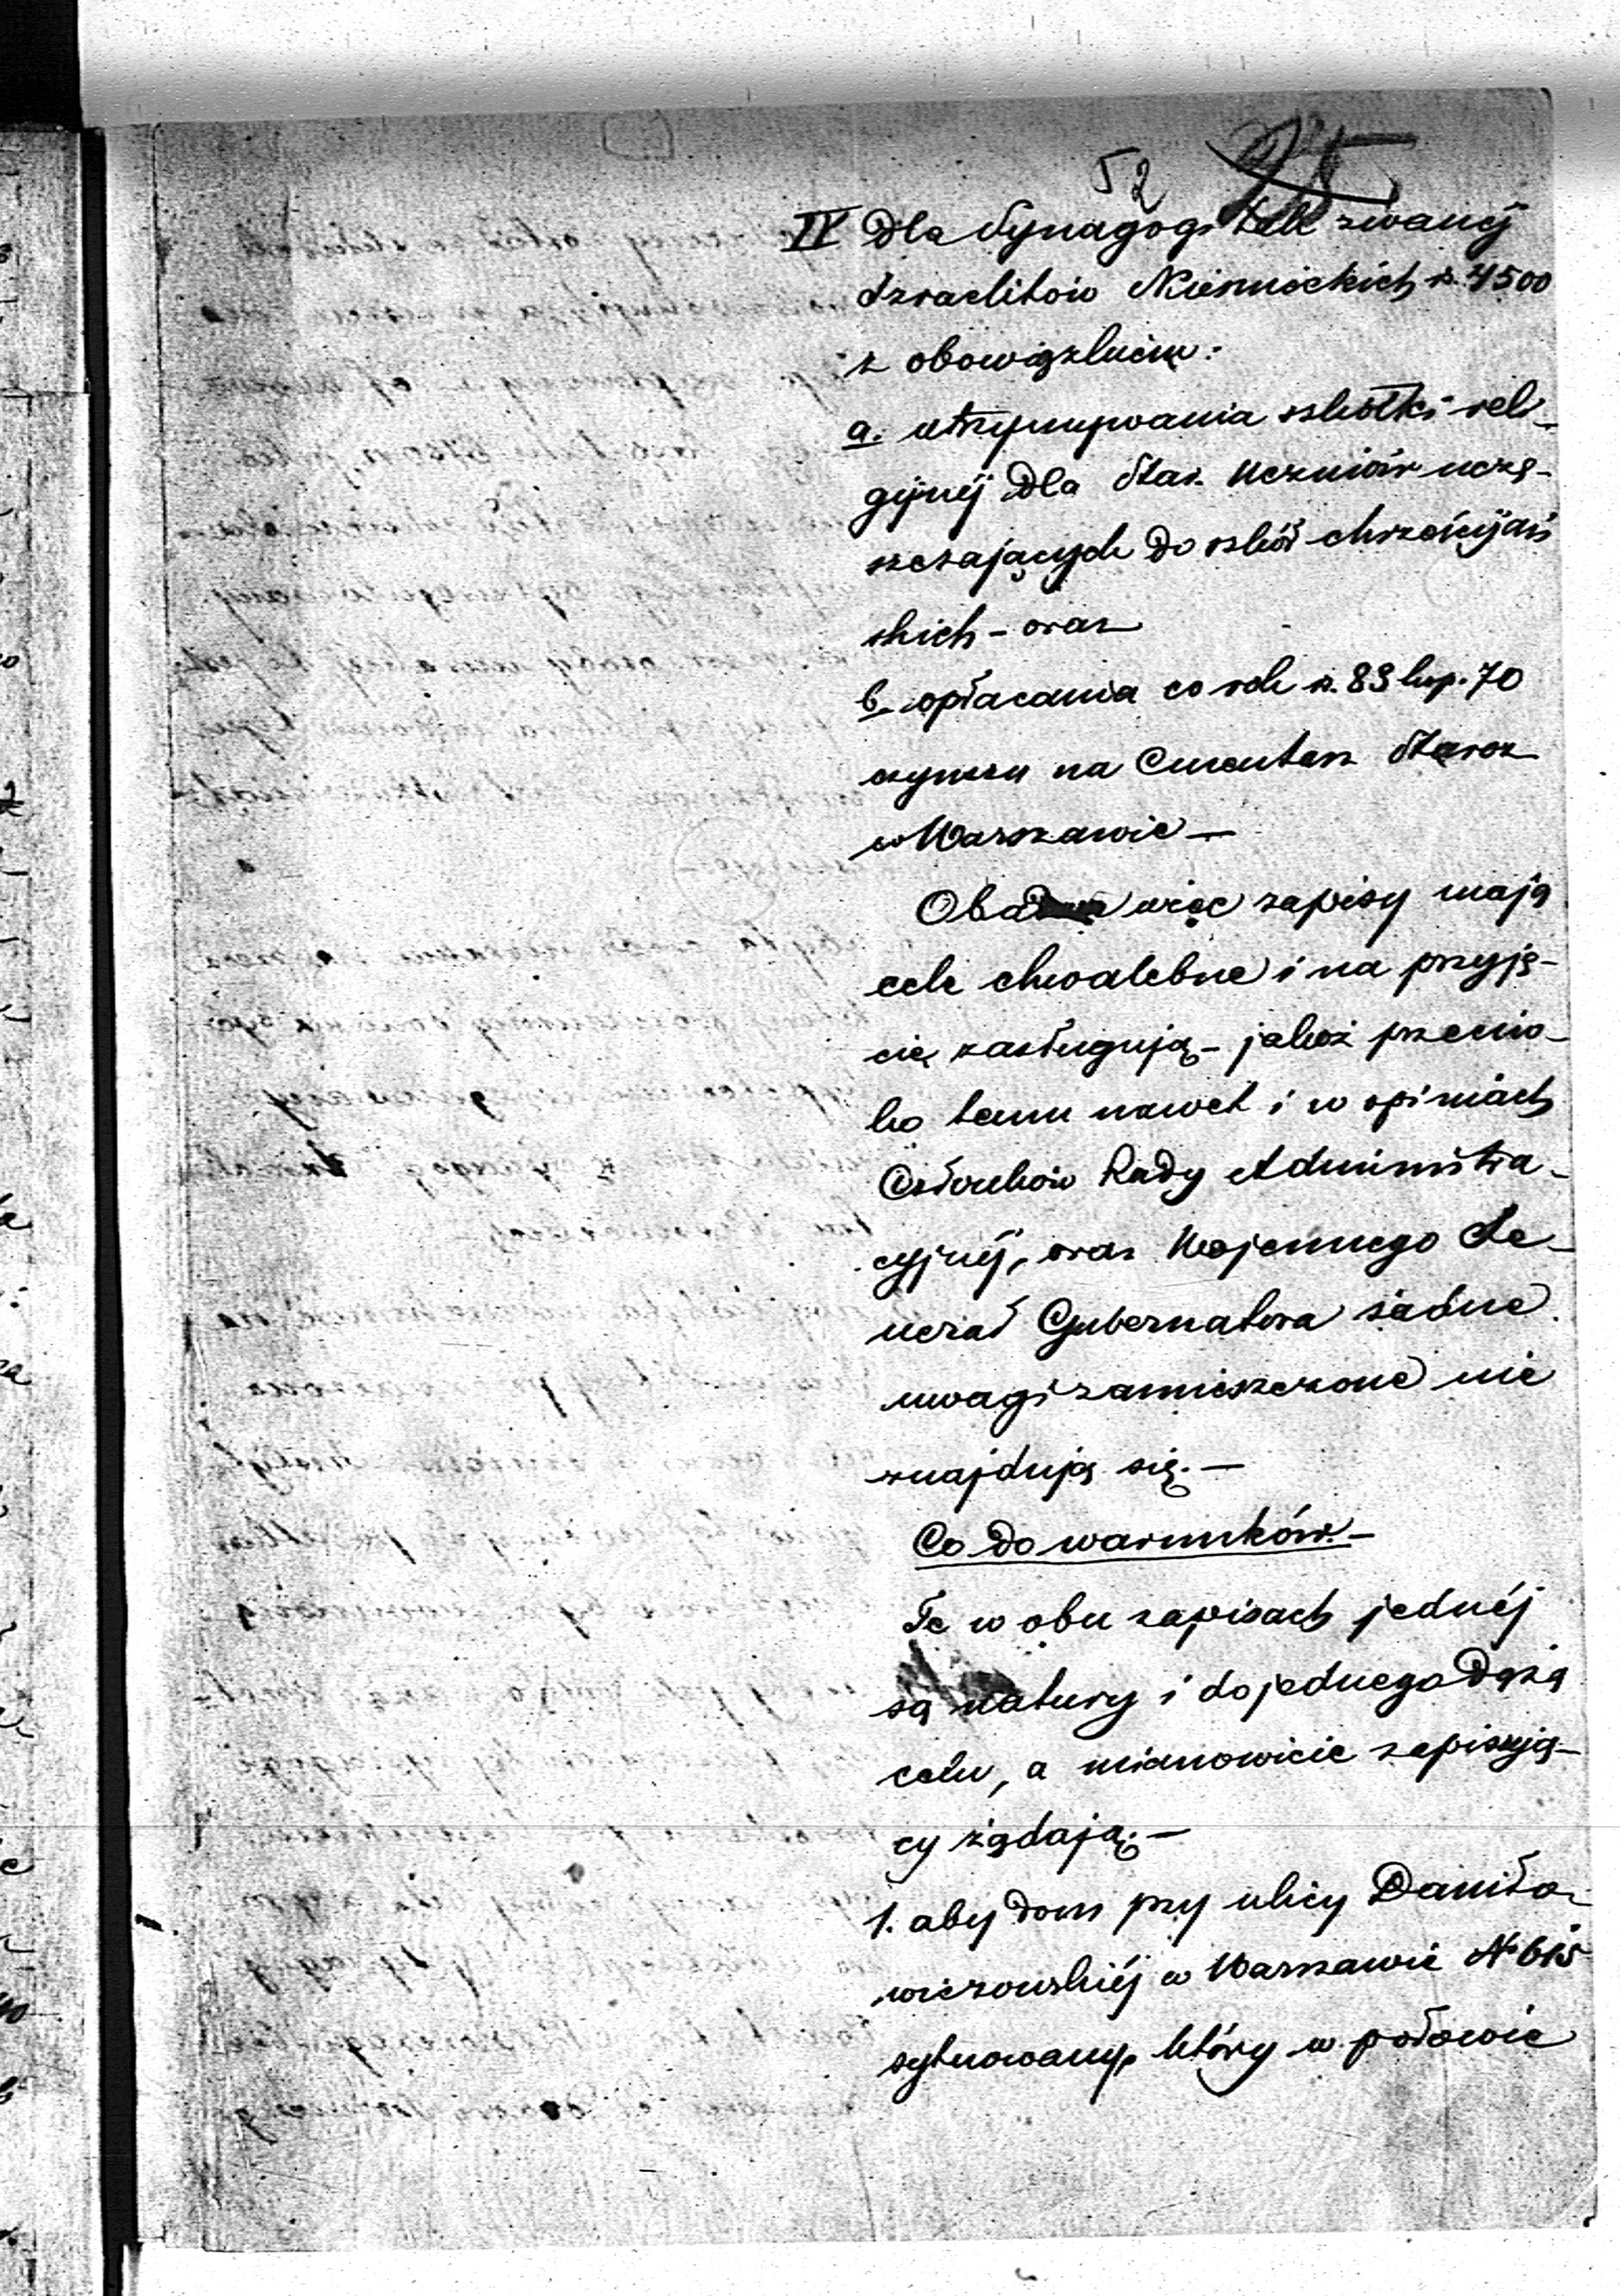 52
IV Dla Synagogi tak zwanej
Izraelitów Niemieckich r. 4500
z obowiązkiem:
a. utrzymywania szkółki reli-
gijnéj dla Star. Uczniów uczę-
szczających do szkół chrześcijań
skich – oraz
b. opłacania co rok r. 83 kop. 70
czynszu na Cmentarz Staroz
w Warszawie –
Oba więc zapisy mają
cele chwalebne i na przyję-
cie zasługują – jakoż przeciw-
ko temu nawet i w opiniach
Członków Rady Administra-
cyjnéj, oraz Wojennego Je-
nerał Gubernatora żadne
uwagi zamieszczone nie
znajdują się. –
Co do warunków. –
Te w obu zapisach jednéj
są natury i do jednego dążą
celu, a mianowicie zapisują-
cy żądają: –
1. aby dom przy ulicy Daniło-
wiczowskiéj w Warszawie N 615
sytuowany, który w połowie